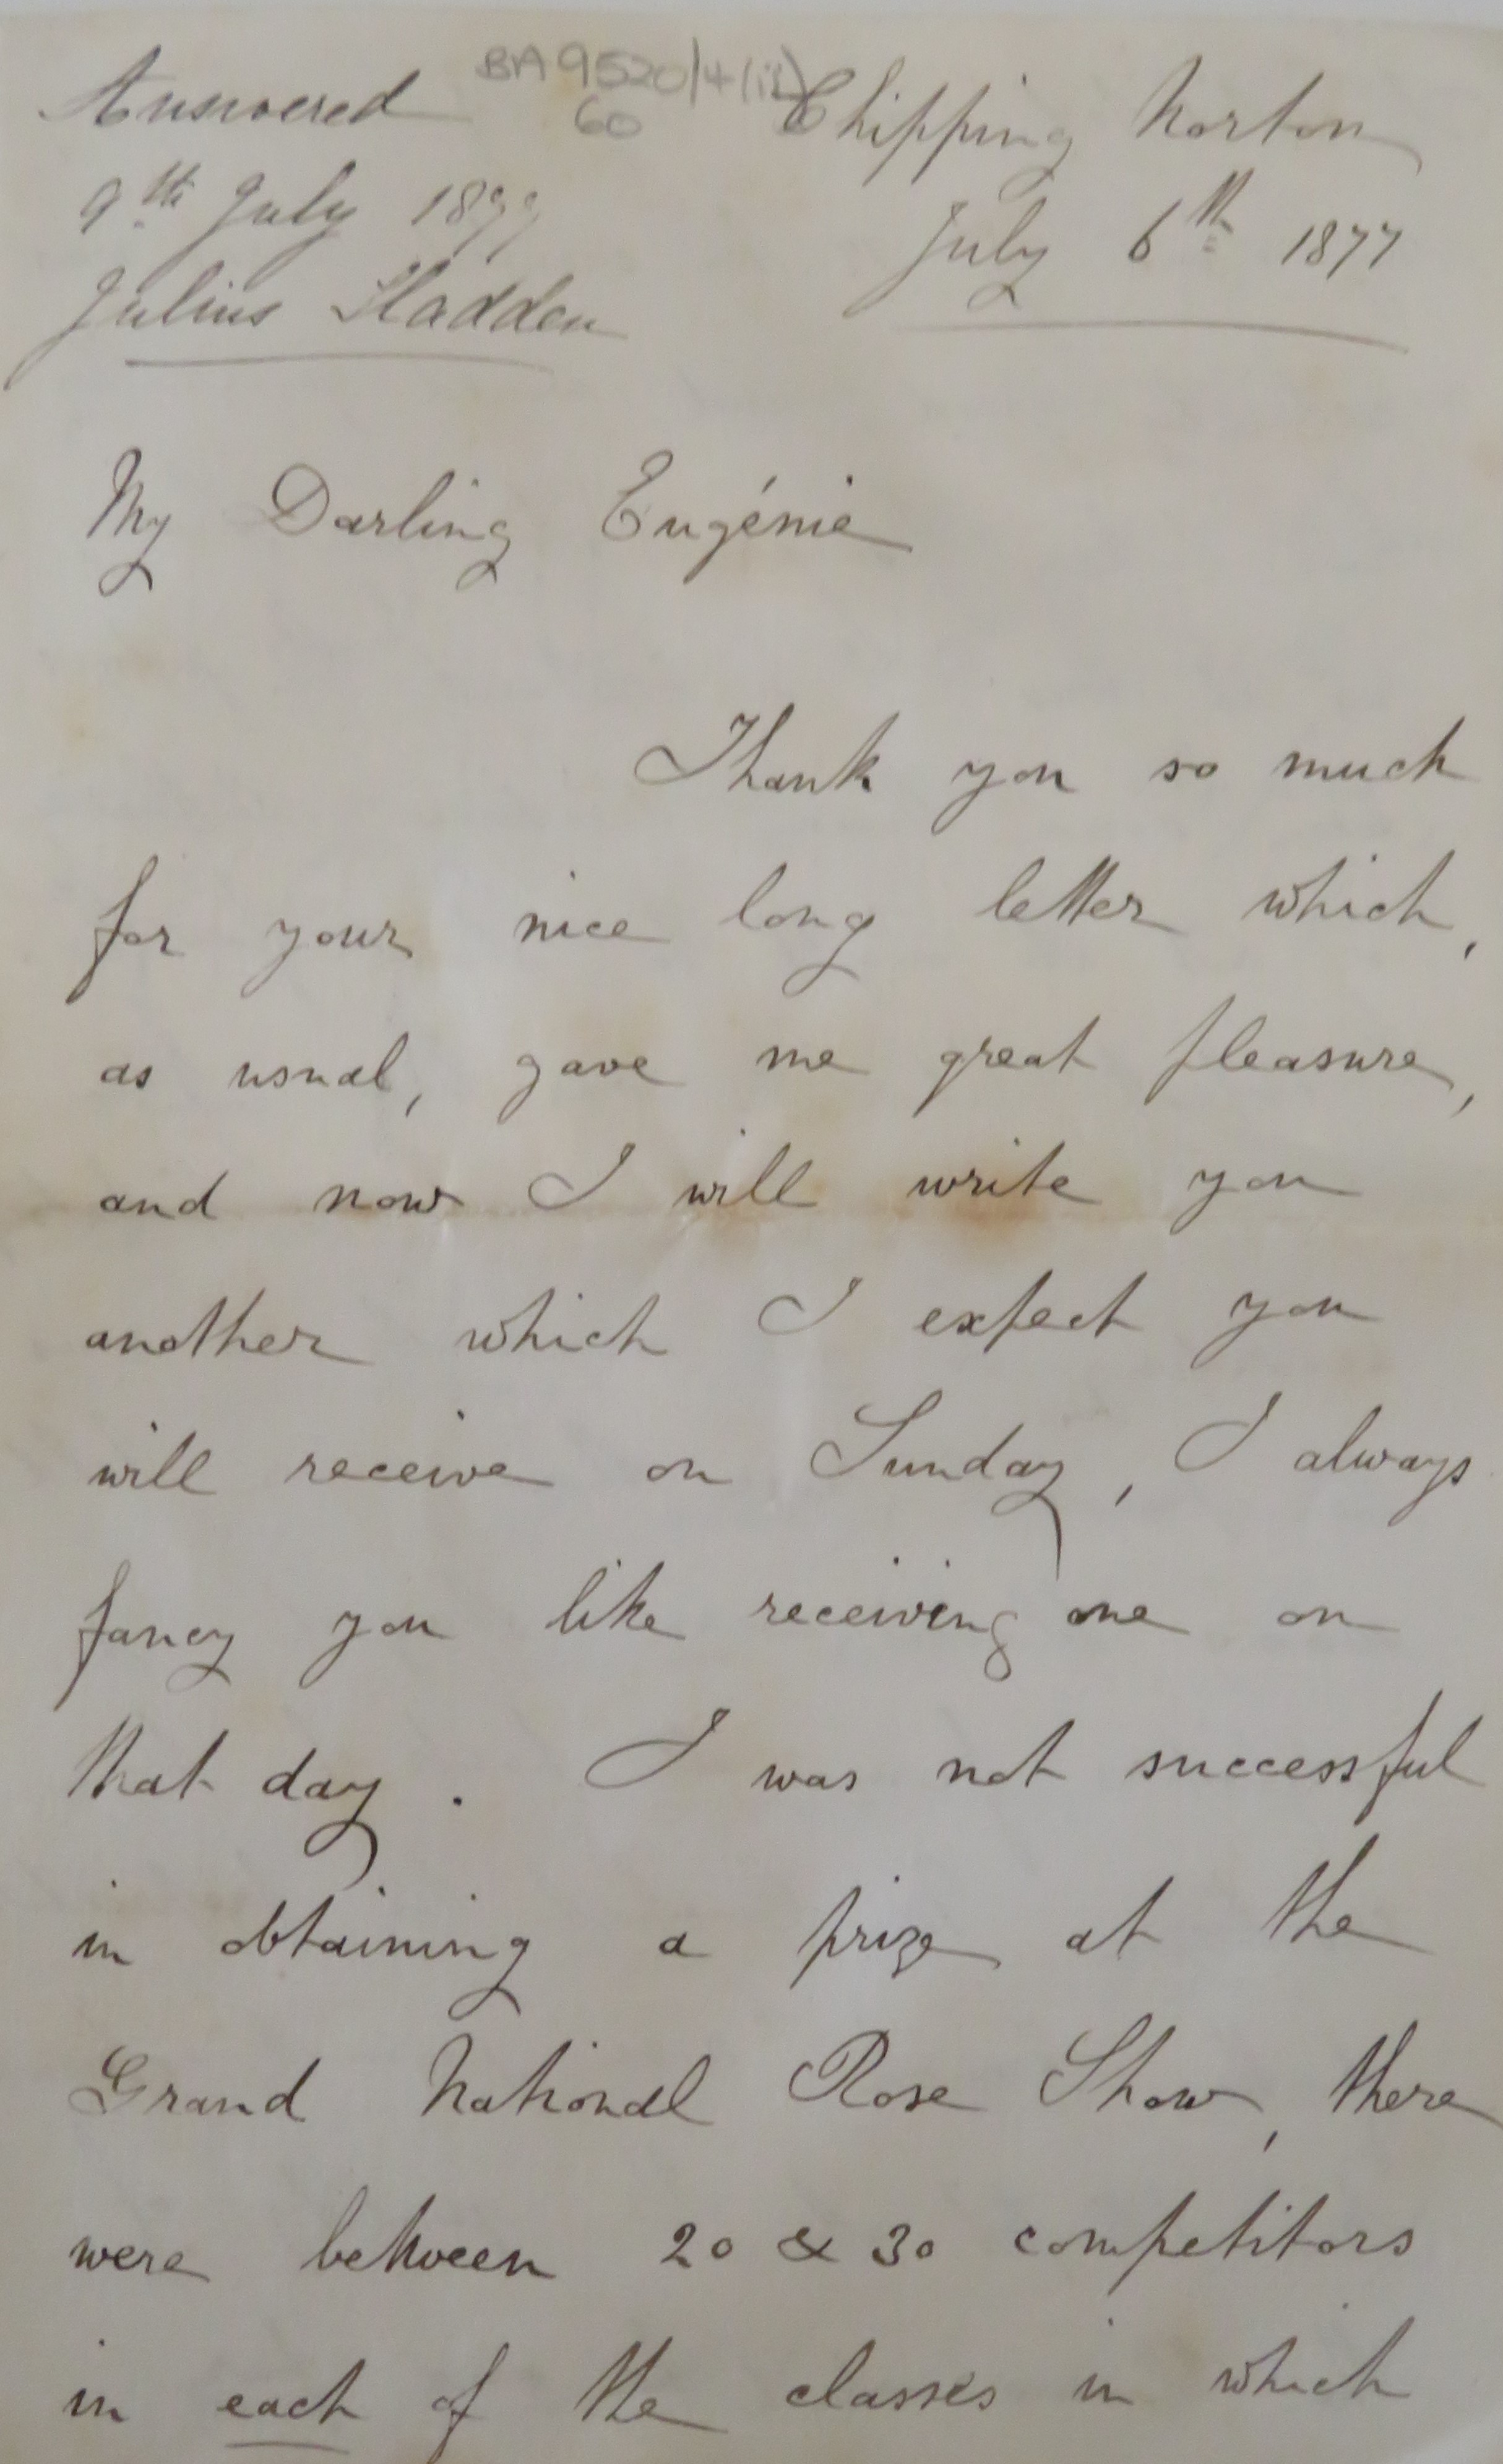 BA9520/4(ii)
60
Answered
9th July 1877
Julius Sladden
Chipping Norton
July 6th 1877
My Darling Eugénie
Thank you so much
for your nice long letter which,
as usual, gave me great pleasure,
and now I will write you
another which I expect you
will receive on Sunday, I always
fancy you like receiving one on
that day. I was not successful
in obtaining a prize at the
Grand National Rose Show, there
were between 20 & 30 competitors
in each of the classes in which